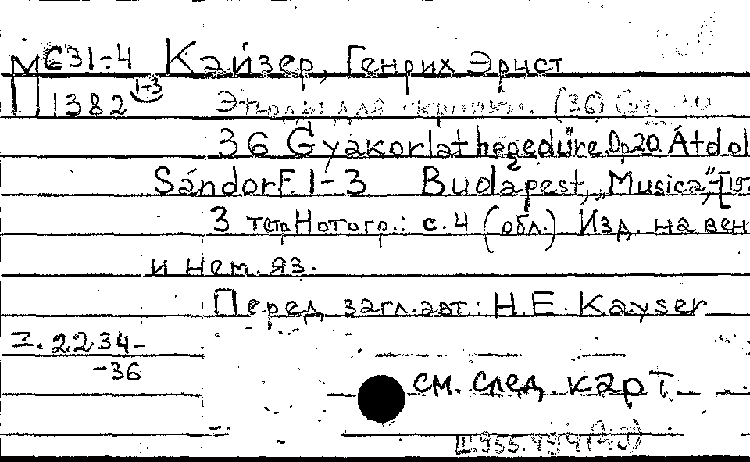 М С31-4 Кайзер, Генрих Эрнст
П 1382 1-3 Этюды для скрипки. (36)
36 Gyakorlat hegedűre Op 20 Átdol
Sándor F. 1-3 Budapest, „Musica”, [19
3 тетр Нотогр.: с. 4 (обл.) Изд. на вен
и нем. яз.
Перед загл. авт: H. E. Kayser
I. 2234-
-36
см. след карт